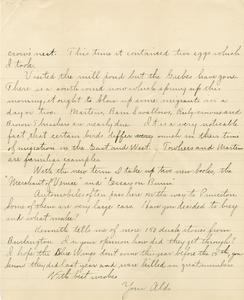 crow's nest. This time it contained two eggs which
I took.
Visited the mill pond but the Grebes have gone.
There is a south wind now which sprung up this
morning, it ought to blow up some migrants in a
day or two. Martin, Barn Swallow, Ruby crowns and
Brown Thrashers are nearly due. It is a very noticeable
fact that certain birds differ very much in their time
of migration in the East and West. Towhees and Martins
are familiar examples
With the new term I take up two new books, the
"Merchant of Venice" and "Essay on Burns".
A number of are on their way to Princeton
Some of them are very large ears. Have you decided to buy
and what make?
Kenneth tells me of some 150 duck stories from
Burlington. In your opinion how did they get though?
I hope the Blue Wings don't come this year before the 15th, you
know they did last year and were killed in great numbers
With best wishes
Your Aldo